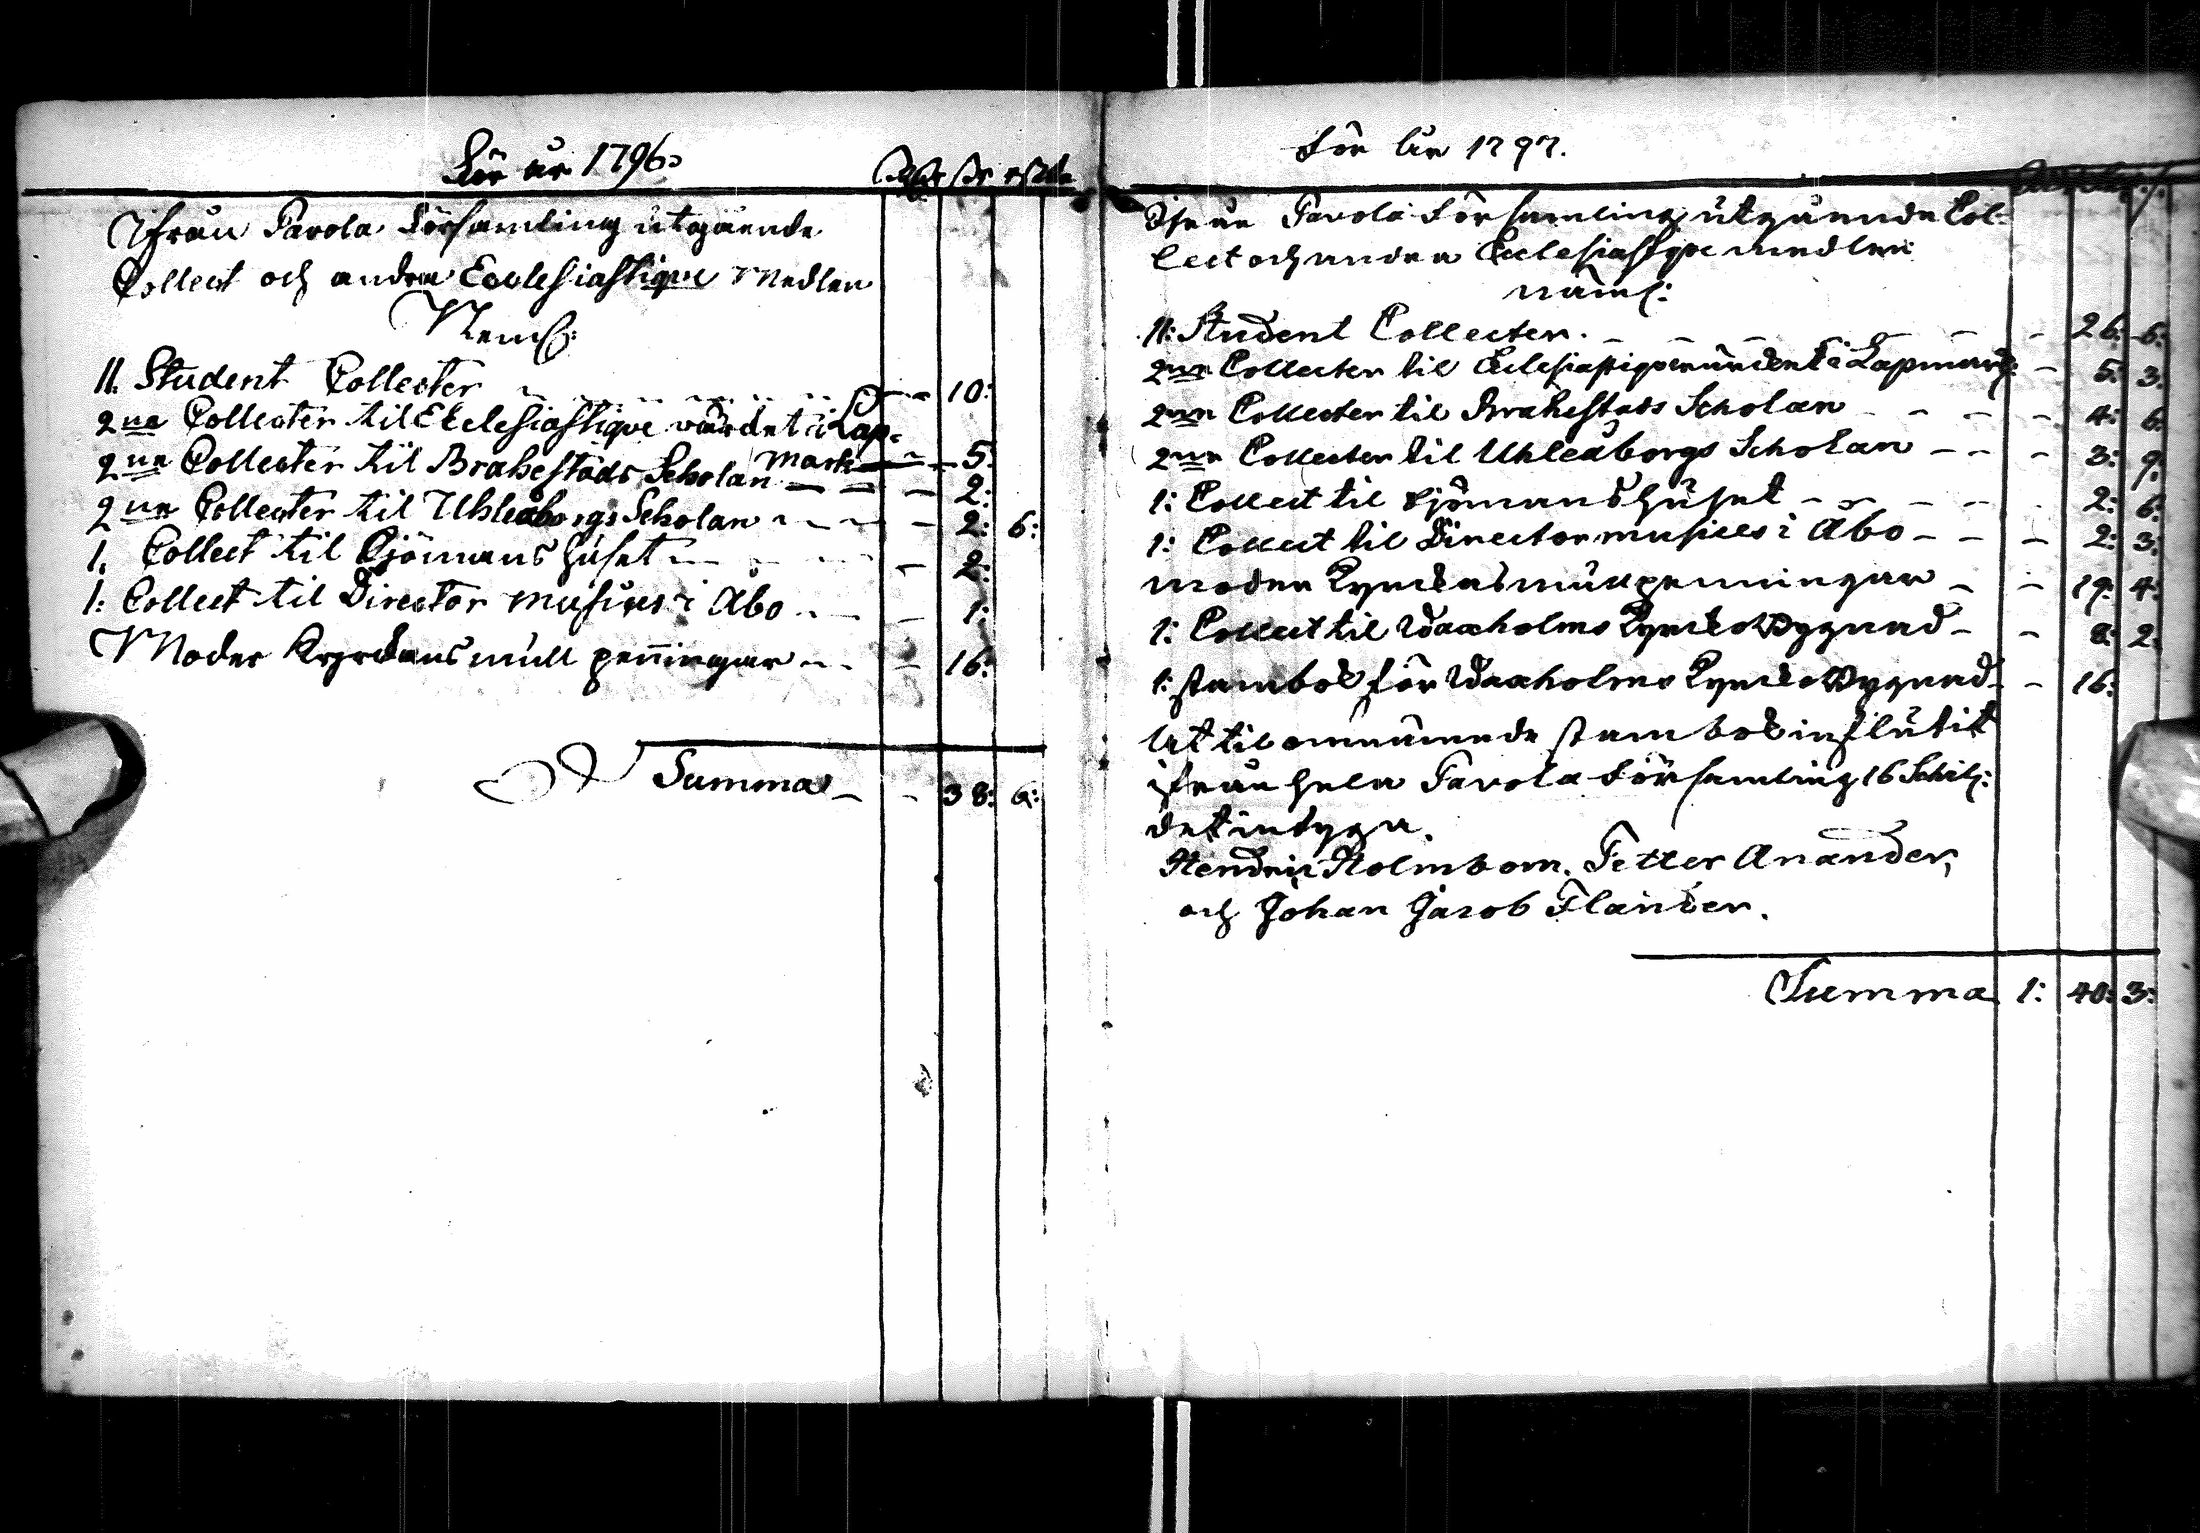 För år 1796.
Ifrån Pavola Församling utgående
Collect och andra Ecclesiastique Medlen
Neml:
11. Student Collecter 10:
2ne Collecter til Ecclesiastique värdet i Lap-
mark 5:
2ne Collecter til Brahestads Scholan 2:
2ne Collecter til Uhleåborgs Scholan 2: 6:
1. Collect til Sjömans huset 2:
1: Collect til Director musices i Åbo 1:
Moder Kyrckans mull penningar 16:
Summa 38: 6:
För År 1797.
Ifrån Pavola Församling utgående Col-
lect och andra Ecclesiastique medlen
näml:
11: Student Collecter. 26: 6:
2ne Collecter til Eclesiastique värdet i Lapmark: 5: 3:
2ne Collecter til Brahestads Scholan 4: 6:
2ne Collecter til Uhleåborgs Scholan 3: 9:
1: Collect til Sjömans huset 2: 6:
1: Collect til Director musices i Åbo 2: 3:
moder Kyrckas mull penningar 19: 4:
1: Collect til Waxholms Kyrcko Bygnad 8: 2:
1: stambok för Waxholms Kyrcko Bygnad 16:
At til omnämnde stambok influtit
ifrån hela Pavola Församling 16 Schil:
det intyga.
Hendric Holmbom. Petter Anander,
och Johan Jacob Flander.
Summa 1: 40: 3: